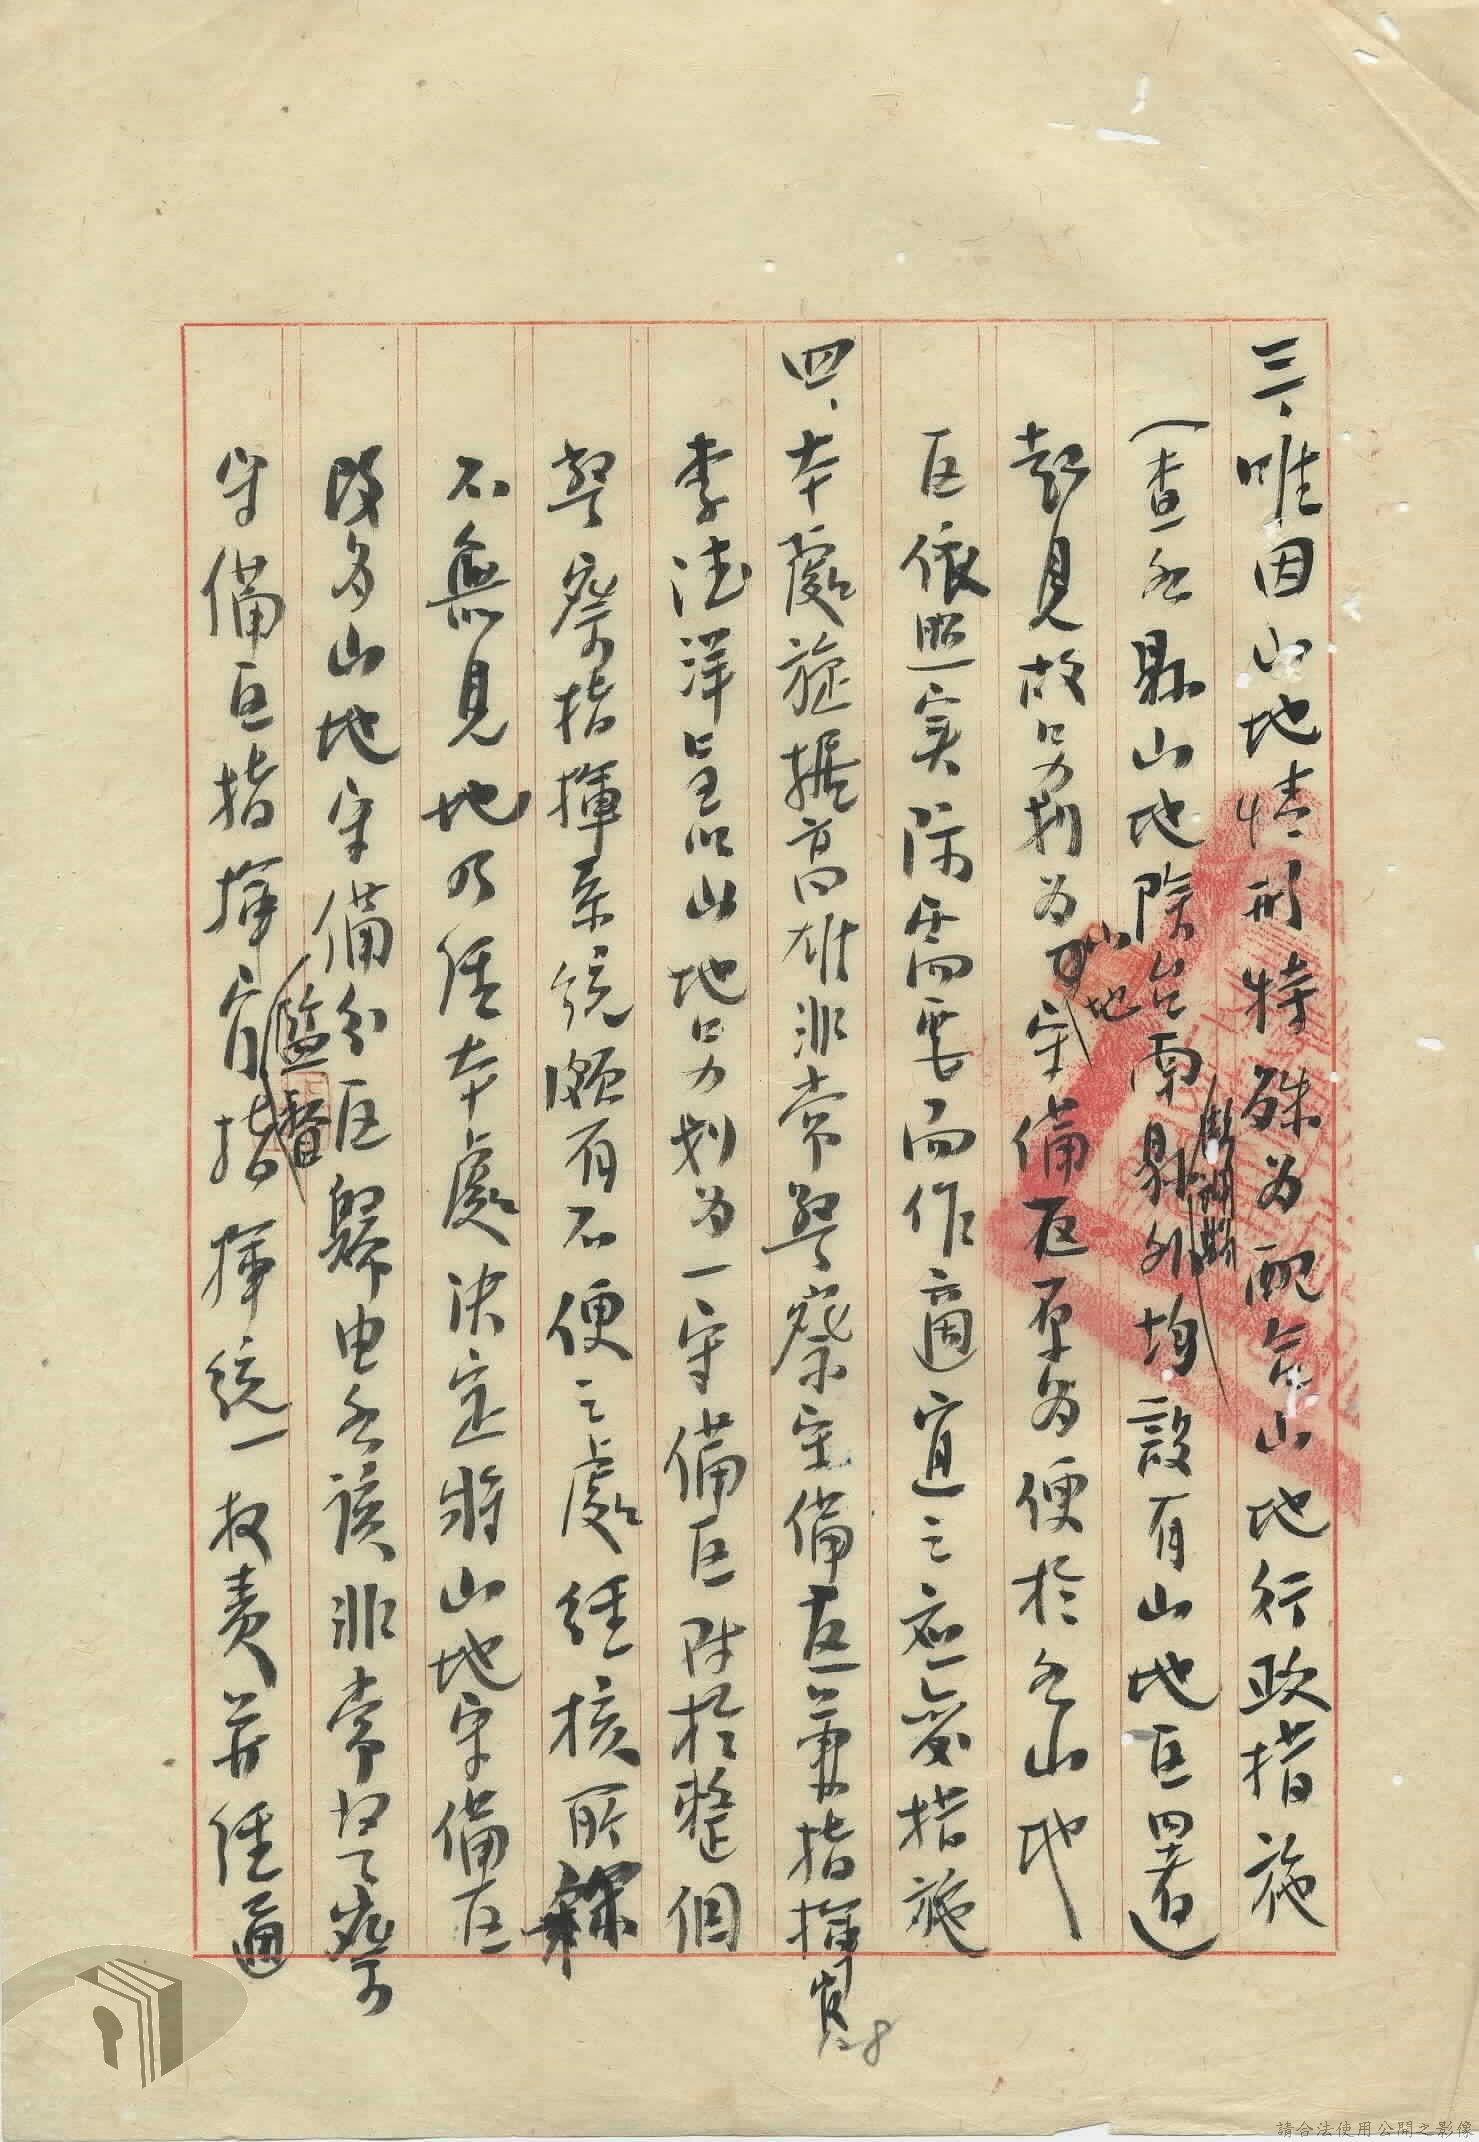 三、唯因山地情形特殊为配合山地行政措施
(查各縣山地除台南縣外均設有山地区署)
起見故另划为山地守備区原为便於各山地
区依照实际需要而作適宜之应变措施
四、本處旋據高雄非常警察守備区兼指揮官
李德洋呈以山地另划为一守備区陣於整個
警察指揮系統頗有不便之處經核所稱
不無見地乃經本處決定將山地守備区
改为山地守備分区歸由各該非常警察
守備区指揮官監督指揮統一权责并經通
28
請合法使用公開之影像